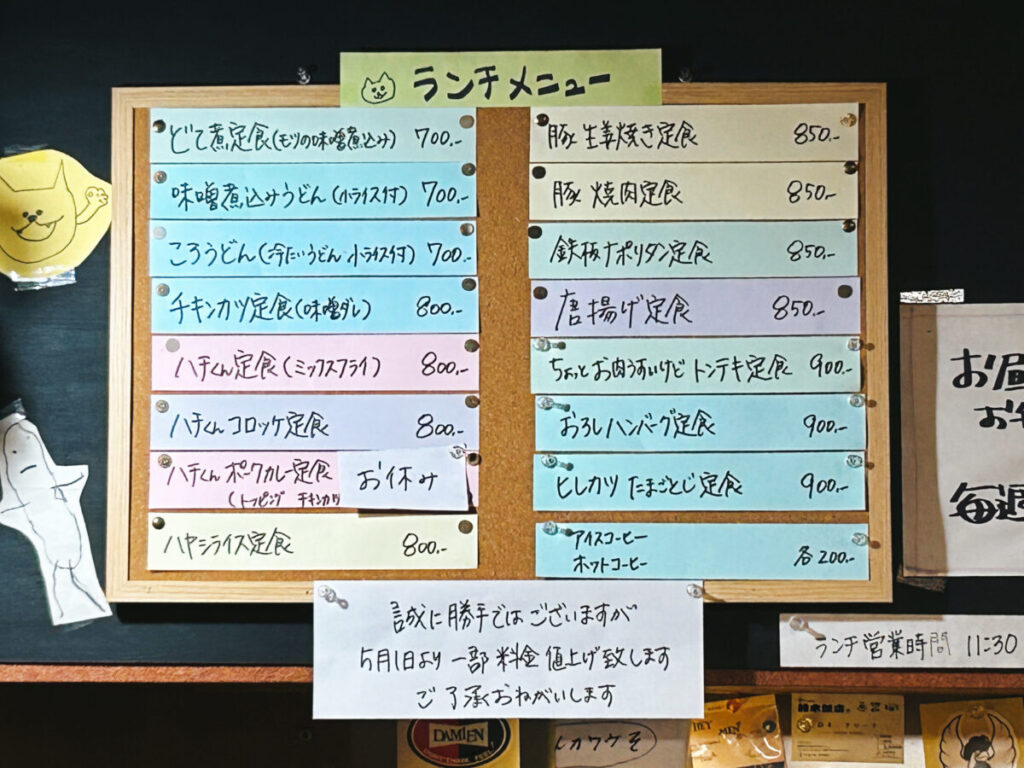 ランチメニュー
どて煮定食(モツの味噌煮込み) 700.-
味噌煮込みうどん(小ライス付) 700.-
ころうどん(冷たいうどん 小ライス付) 700.-
チキンカツ定食(味噌ダレ) 800.-
ハチくん定食(ミックスフライ) 800.-
ハチくんコロッケ定食 800.-
ハチくんポークカレー定食 お休み
(トッピング チキンカツ
ハヤシライス定食 800.-
豚生姜焼き定食 850.-
豚焼肉定食 850.-
鉄板ナポリタン定食 850.-
唐揚げ定食 850.-
ちょっとお肉うすいけど トンテキ定食 900.-
おろしハンバーグ定食 900.-
ヒレカツ たまごとじ定食 900.-
アイスコーヒー
ホットコーヒー 各200.-
誠に勝手ではございますが
5月1日より 一部 料金 値上げ致します
ご了承くおねがいします
お昼
お弁
毎週
ランチ営業時間 11:30
DAMIEN
HEY